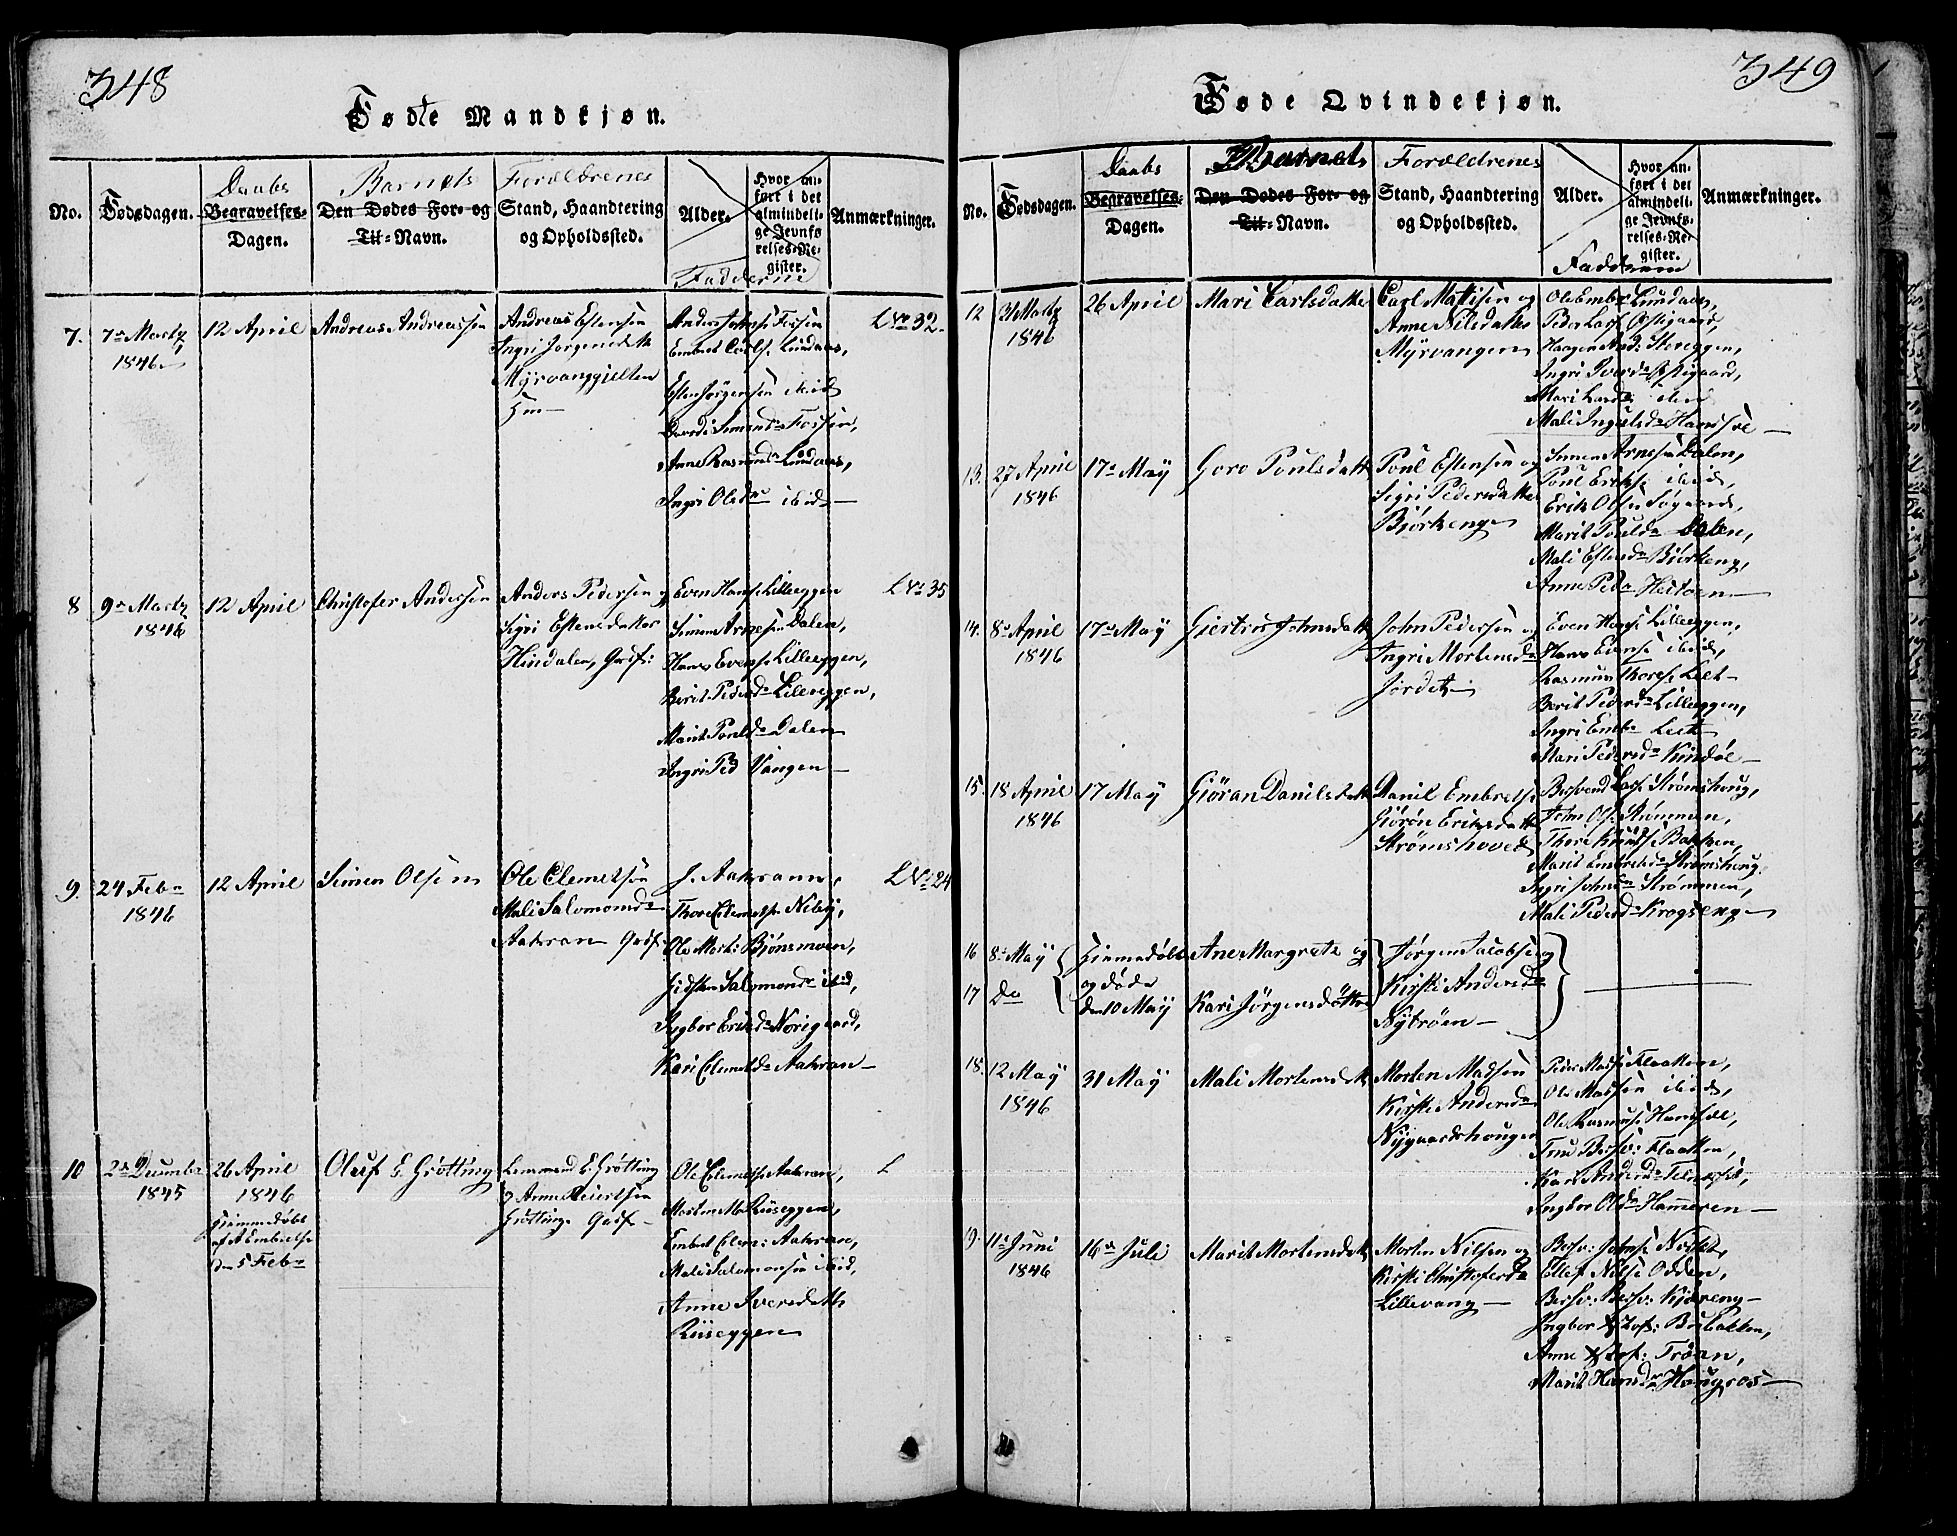 348
Fødte Mandkjøn.
No.
Fødsdagen.
Daabs
Begravelses-
Dagen.
Barnets
Den Dødes For- og
Til-Navn.
Forældrenes
Stand, Haandtering
og Opholdssted.
Alder.
Fadderne
Hvor an-
ført i det
almindeli-
ge Jevnfø-
relses-Re-
gister.
Anmærkninger.
7.
7de Martz
1846
12 April
Andreas Andreassen
Andreas Estensen
Ingri Jorgensdtr
Myrvanggjelten
Embret Carlse Lundaas,
Esten Jørgensen ibid
Anne Rasmusda Lundaas,
Ingri Olsda ibid
L No 32.
8
9de Martz
1846
12 April
Christofer Andersen
Anders Pedersen og
Sigri Estensdatter
Hindalen, Gaif:
Even Hanse Lilleeggen
Simen Arnesen Dalen,
Hans Evense Lilleeggen,
Berit Pedersda Lilleeggen,
Marit Poulsda Dalen
Ingri Ped Vangen
L No 35
9.
24 Feb
1846
12 April
Simen Olsen
Ole Clemetsen
Mali Salomonsda
Aasran
J. Aasrann,
Thore Clemetse Nibÿ,
Ole Mort: Bjønsmoen,
Salomonsda ibid,
Ingbor Eriksda Norigaard,
Kari Clemetsda Aasran
L No 24
10
1845
26 April
1846
Hiemmedøbt
af A Embretse
den 5 Feb
Oluf E. Grøtting
E. Grøtting
Grøtting
Ole Clemetse Aasran,
Morten Riiseggen,
Embret Clem: Aasran,
Mali Salomonsen ibid,
Anne Iversdatter
Riiseggen
L
349
Føde Qvindekjøn.
No.
Fødsdagen.
Daabs
Begravelses-
Dagen.
Barnets
Den Dødes For- og
Til-Navn.
Forældrenes
Stand, Haandtering
og Opholdssted.
Alder.
Hvor an-
ført i det
almindeli-
ge Jevnfø-
relses-Re-
gister.
Anmærkninger.
12
31 Martz
1846
26 April
Mari Carlsdatter
Carl Mattisen og
Anne Nilsdatter
Myrvangen
Ole Embr Lundaas,
Peder Lars Østigaard,
Haagen And: Storeggen,
Ingri Iversda Østigaard,
Mari Larsd ibid
Mali Ingelsda Hamsoe
13.
27 April
1846
17de Maÿ
Goro Poulsdatter
Poul Estensen og
Sigri Pedersdatter
Bjørkeng
Simen Arnesen Dalen,
Poul Erikse ibid,
Erik Olsen Søgaard,
Marit Poulsda Dalen,
Mali Estensda Bjørkeng,
Anne Peda
14.
8de April
1846
17de Maÿ
Giertru Johnsdatter
John Pedersen og
Ingri Mortensda
Jordet
Even Hanse Lilleeggen,
Hans Evense ibid,
Rasmus Thorese Lect
Berit Pedersda Lilleeggen,
Ingri Embr Lect
Mari Pedersda Kindøl
15.
18 April
1846
17 Maÿ
Giøran Danilsdatter
Danil Embretse
Giørøn Eriksdatter
Strømshoved
Besvend Larse Strømshoug,
John Ols. Strømmen,
Thore Knudse Bakken,
Marit Embretsda Strømshoug
Ingri Johnsda Strømmen,
Mali Pedersda Krogseng
16
8de Maÿ
Hiemmedøbt
og døde
den 10 Maÿ
Ane Margrete og
Jørgen Jacobse og
Kirsti Andersda
Nÿtrøen
17
Do
Kari Jørgensdøttre
18.
12 Maÿ
1846
31 Maÿ
Mali Mortensdatter
Morten Madsen
Kirsti Andersda
Nÿgaardshougen
Peder Madse Flaatten,
Ole Madsen ibid,
Ole Rasmuse Hamsoe,
Kari Andersda
Ingbor Olsda Hammeren
19.
11te Juni
1846
16de Juli
Marit Mortensdatter
Morten Nilsen og
Kirsti Christofersda
Lillevang
Ellef Nilse Odden,
Besv: Besv: Kjæreng
Ingbor
Anne Trøan,
Marit Hansda